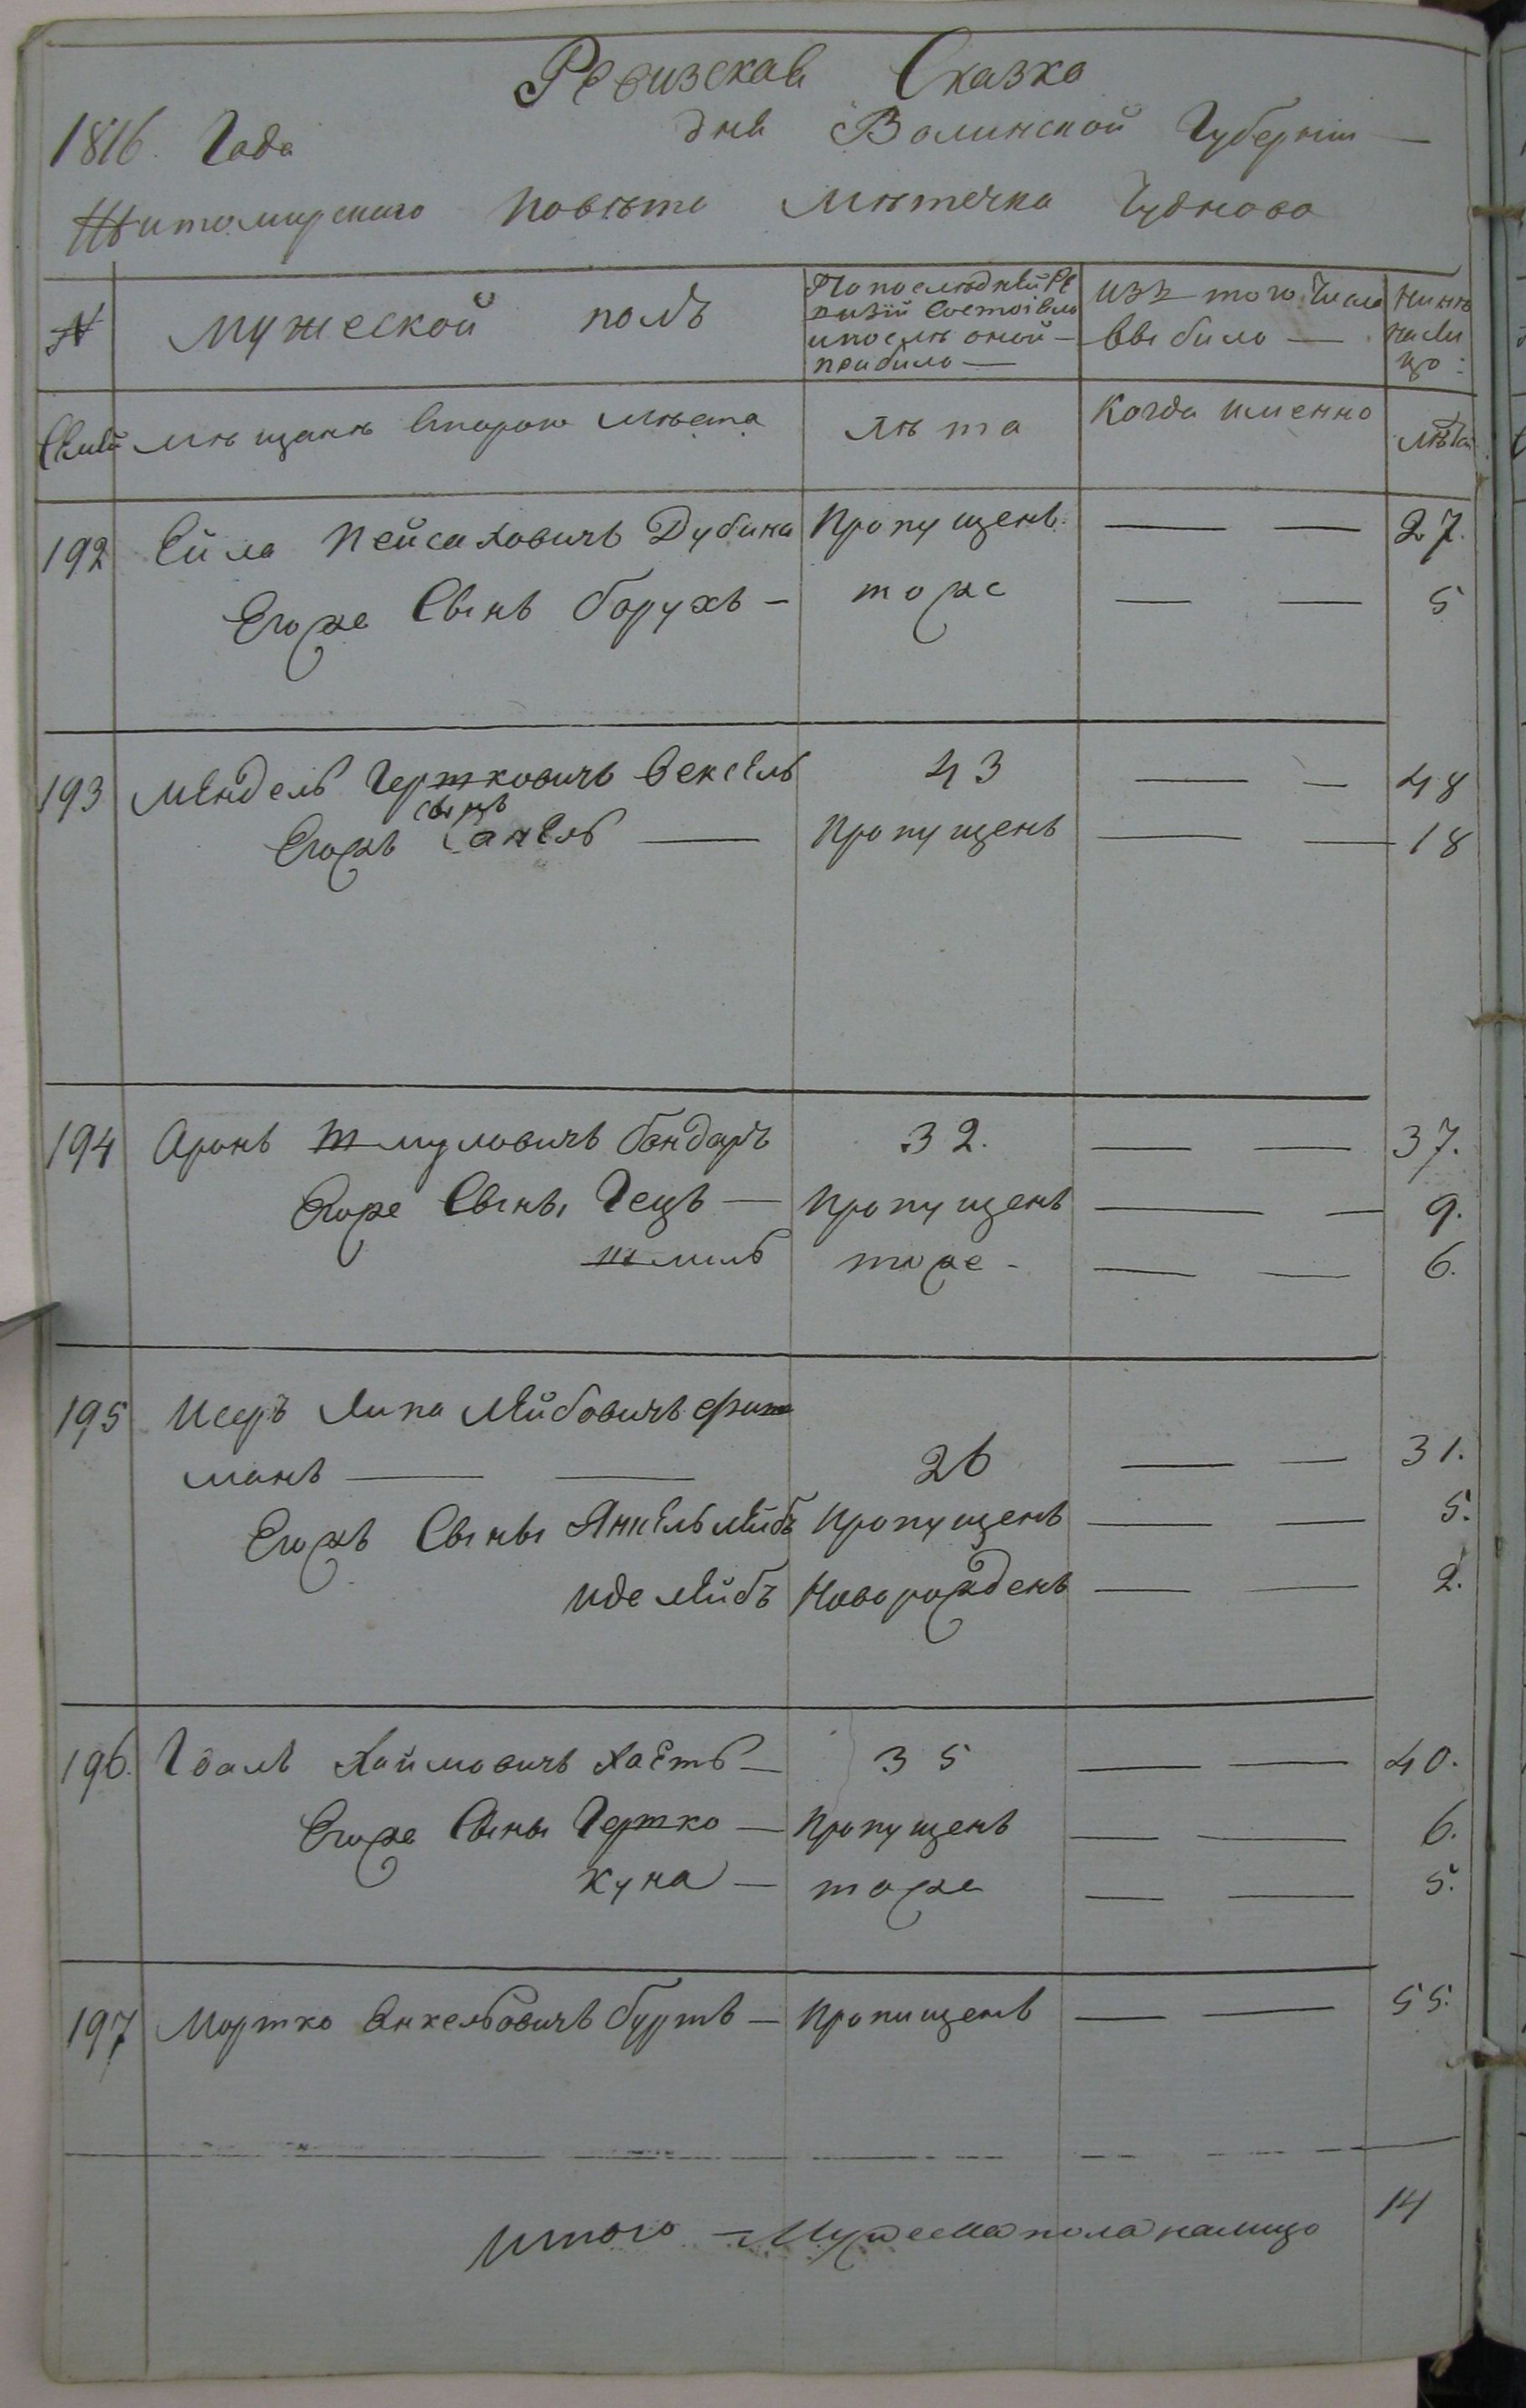 Ревизская Сказка
1816. Года дня Волинской Губернiи
Житомирского Повѣта Мѣстечка Чуднова
№ Мужеской полъ По последней Ревизiи Состояло и после оной прибило Изъ того Числа выбило Нинѣ на лицо:
Семья Мѣщанъ Лѣта Когда именно лѣта
192 Ейла Пейсаховичъ Дубина Пропущенъ 27.
Его же Сынъ борухъ тоже 5
193 Мендель Гершковичъ Вексель 43 48
сынъ
Егожъ Санель Пропущенъ 18
194 Аронъ Шмуловичъ бондаръ 32. 37.
Егоже Сыны Гецъ Пропущенъ 9.
Шмиль тоже 6.
195 Исеръ Липа Лейбовичъ Фиш
манъ 26 31.
Егожъ Сыны Янкель Лейбъ Пропущенъ 5.
Иде Лейбъ Новорожденъ 2.
196. Гдаль Хаймовичъ Хаетъ 35 40.
Егоже Сыны Гершко Пропущенъ 6.
Куна тоже 5.
197 Мортко Енкельовичъ буртъ Пропищенъ 55.
Итого Мужеска пола налицо 14